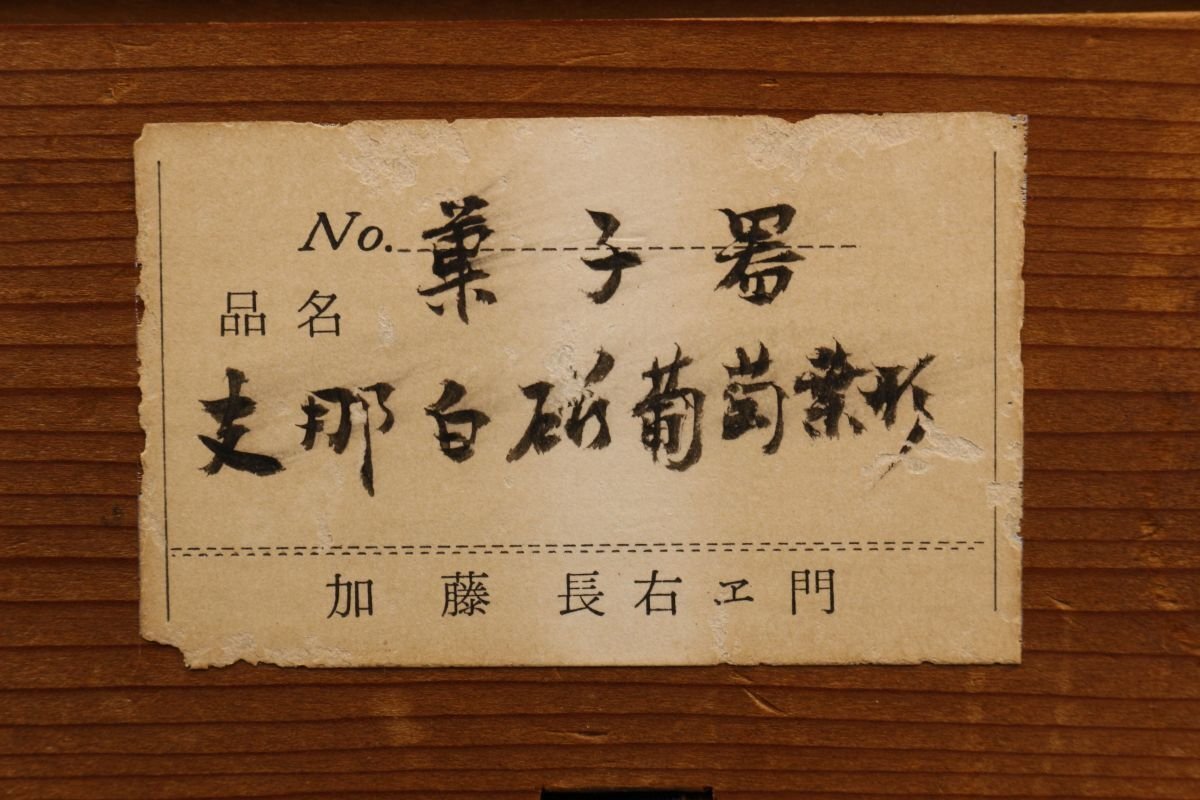 No. 菓子器
品名
支那白砡葡萄葉形
加藤 長右ヱ門